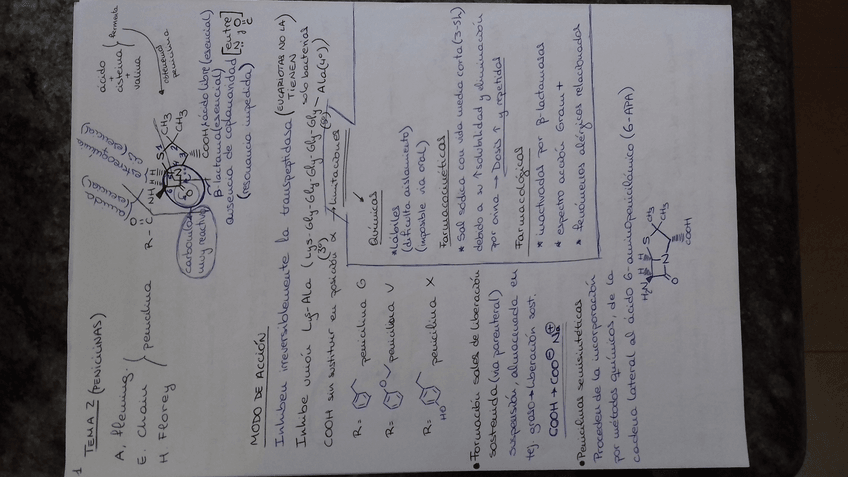 1
TEMA 2 (PENICILINAS)
A, Fleming.
E. Chain
H Florey
penicilina
R - C - NH
O
H H
S1
CH3
CH3
amida
(esencial)
estereoquímica
cis (esencial)
ácido
+
cisteína
+
valina
esencial
penicilina
carbonilo
muy reactivo
COOH → ácido libre (esencial)
β-lactama (esencial)
ausencia de coplanaridad [entre N y O=C]
(resonancia impedida)
MODO DE ACCIÓN
Inhiben irreversiblemente la transpeptidasa (EUCARIOTAS NO LA TIENEN
solo bacterias
Inhibe unión Lys-Ala (Lys-Gly-Gly-Gly-Gly-Gly-Ala(4º)
(3º)
COOH sin sustituir en posición α
R= penicilina G
R= O penicilina V
R= HO penicilina X
Limitaciones
Químicas
* Lábiles
(dificulta aislamiento)
(imposible vía oral)
Farmacocinéticas
* Sal sódica con vida media corta (3-5h)
debido a su ↑solubilidad y eliminación
por orina → Dosis ↑ y repetidas
Farmacológicas
* inactivadas por β-lactamasas
* espectro acción Gram +
* fenómenos alérgicos relacionados
• Formación sales de liberación
sostenida (vía parenteral)
suspensión, almacenada en
tej. graso → liberación sost.
COOH + COO⊖ Na⊕
• Penicilinas semisintéticas
Proceden de la incorporación
por métodos químicos, de la
cadena lateral al ácido 6-aminopenicilánico (6-APA)
H2N
H H
S
CH3
CH3
N
O
COOH